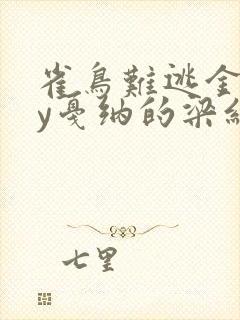 雀鳥難逃金
y戛纳的梁緋
七里